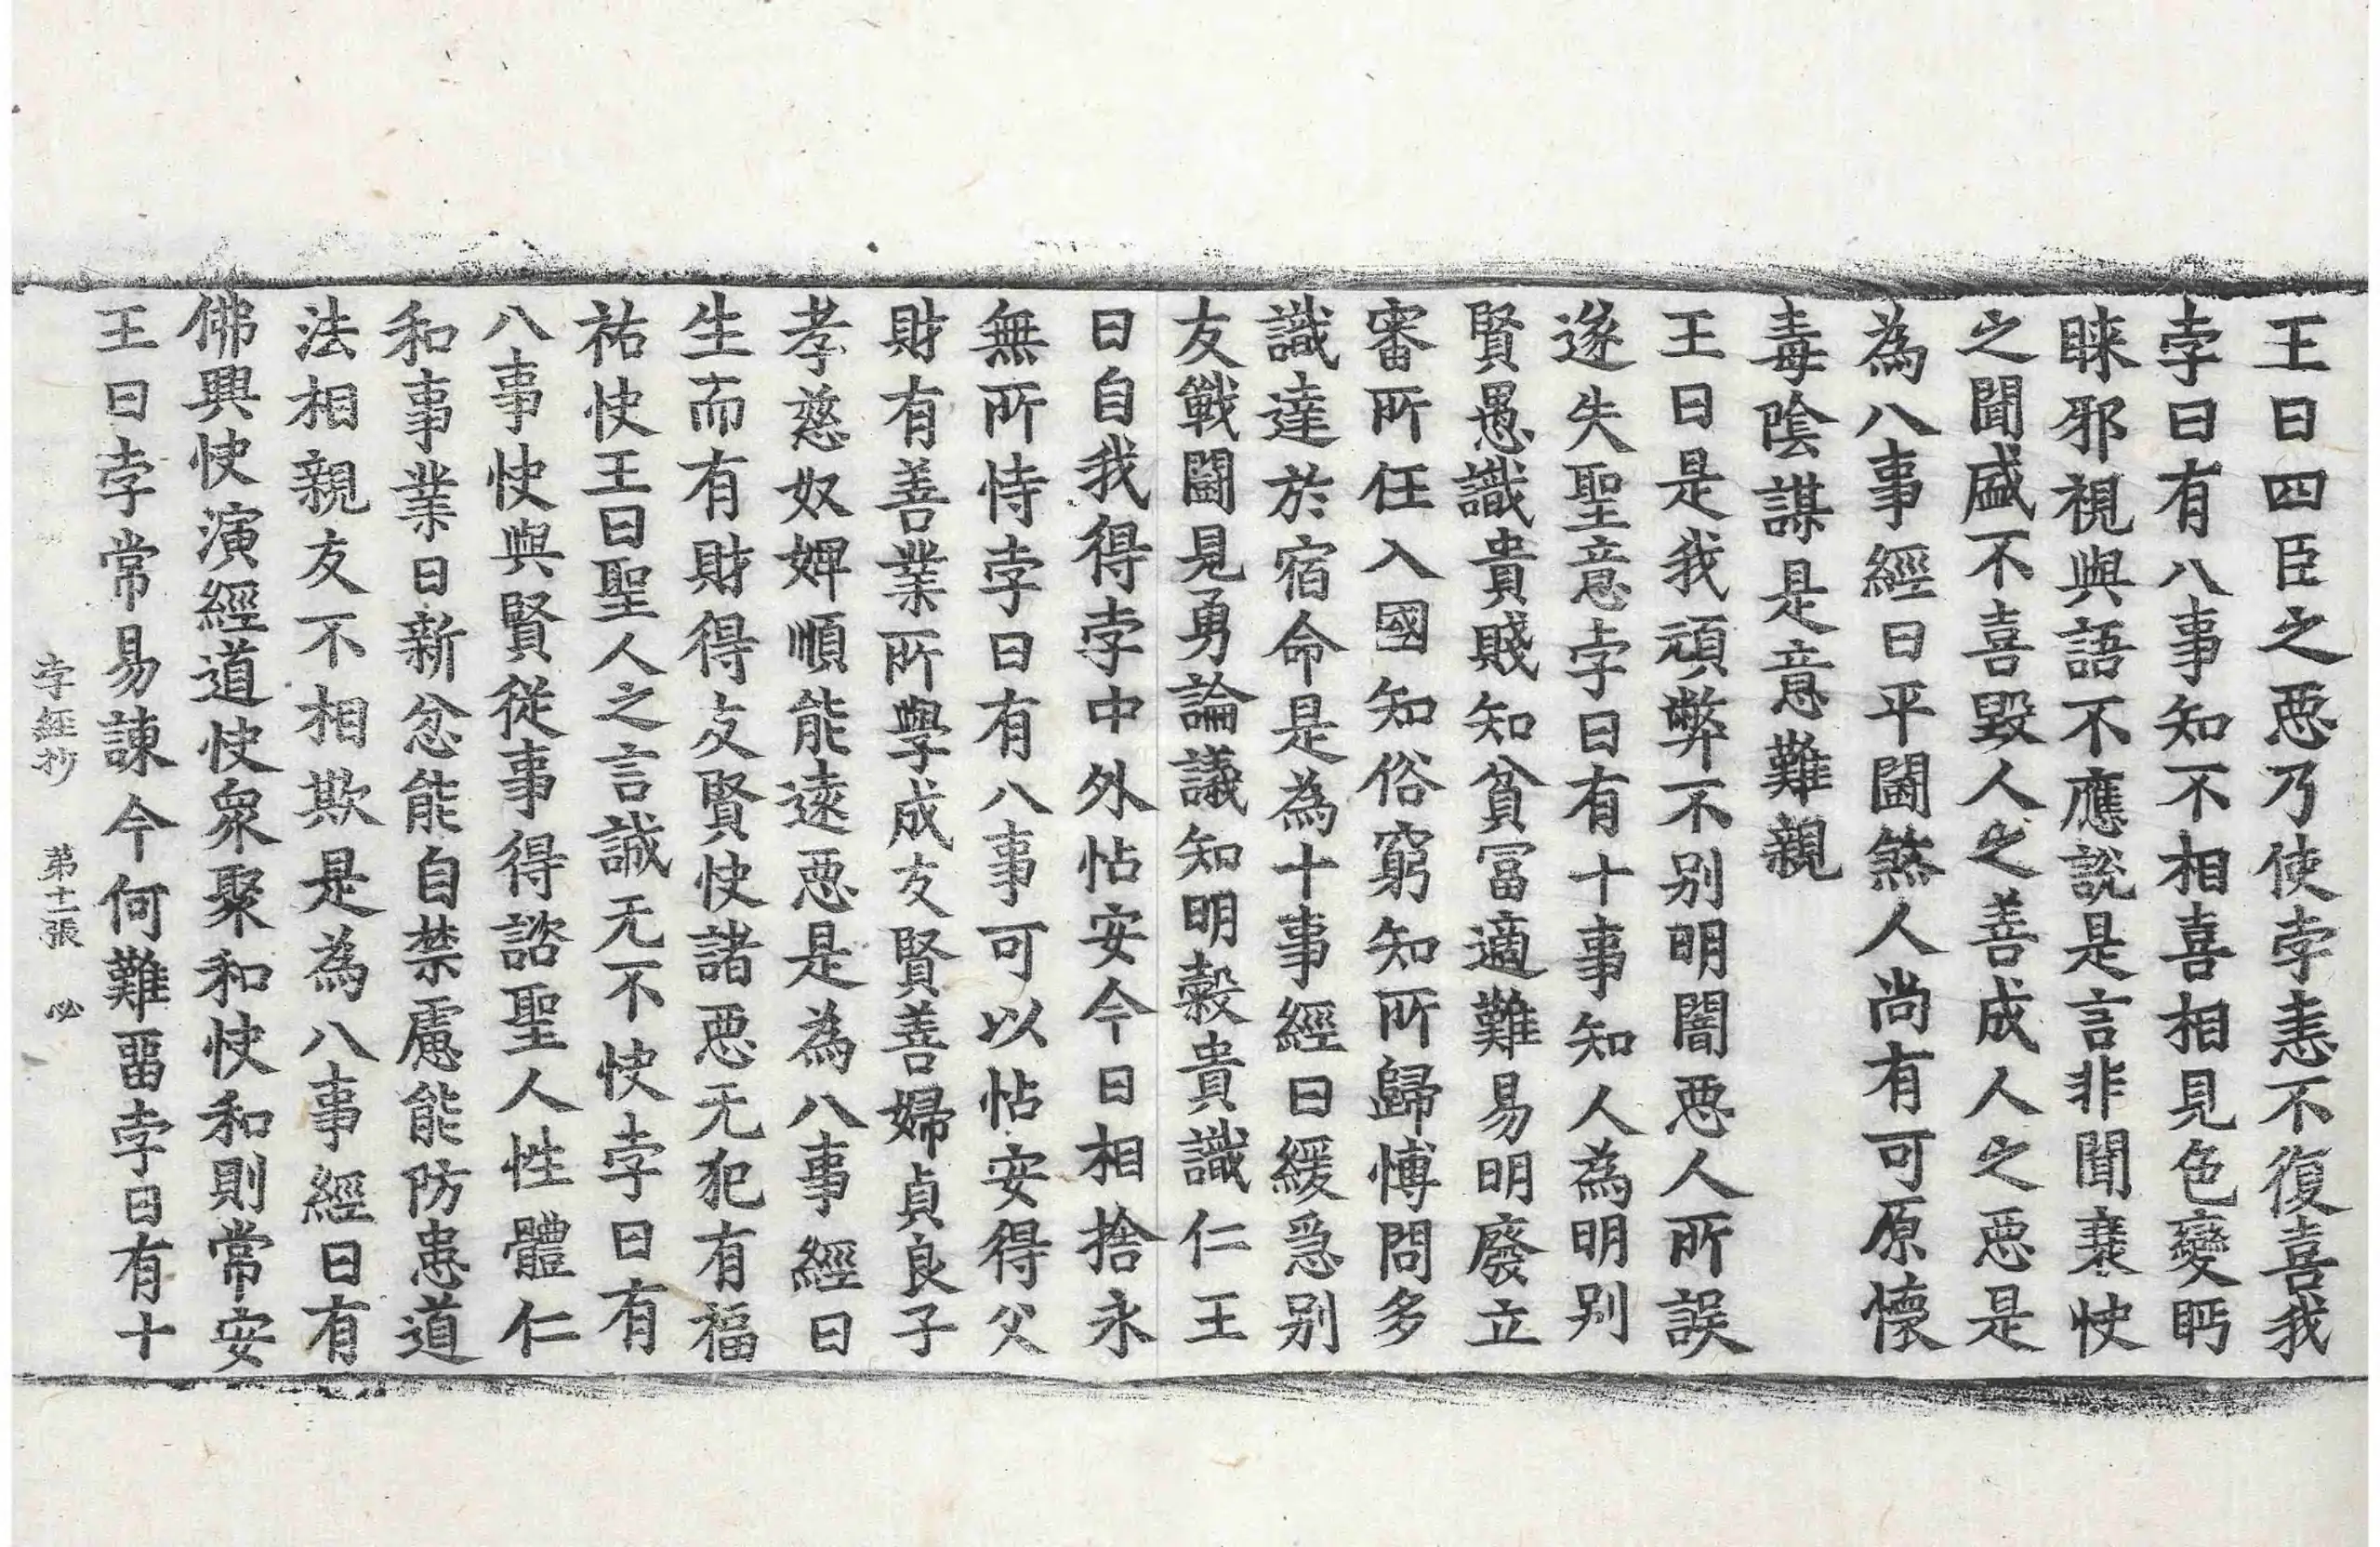 王曰四臣之惡乃使孛恚不復喜我
孛曰有八事知不相喜相見色變眄
睞邪視與語不應說是言非聞衰快
之聞盛不喜毀人之善成人之惡是
為八事經曰平鬪煞人尚有可原懷
毒陰謀是意難親
王曰是我頑弊不別明闇惡人所誤
遂失聖意孛曰有十事知人為明別
賢愚識貴賤知貧冨適難易明廢立
審所任入國知俗窮知所歸博問多
識達於宿命是為十事經曰緩急別
友戰鬪見勇論議知明穀貴識仁王
曰自我得孛中外怗安今日相捨永
無所恃孛曰有八事可以怗安得父
財有善業所學成友賢善婦貞良子
孝慈奴婢順能遠惡是為八事經曰
生而有財得友賢快諸惡无犯有福
祐快王曰聖人之言誠无不快孛曰有
八事快與賢從事得諮聖人性體仁
和事業日新忿能自禁慮能防患道
法相親友不相欺是為八事經曰有
佛興快演經道快衆聚和快和則常安
王曰孛常易諫今何難畱孛曰有十
孛經抄 第十二張 必